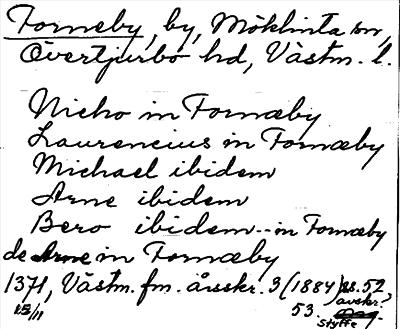 Forneby, by, Möklinta sn,
Övertjurbo hd, Västm. l.
Nicho in Fornæby
Laurencius in Fornæby
Michael ibidem
Arne ibidem
Bero ibidem -- in Fornæby
de Arne in Fornæby
1371, Västm. fm. årsskr. 3 (1884) ss. 52
15/11
53.
avskr.?
Styffe